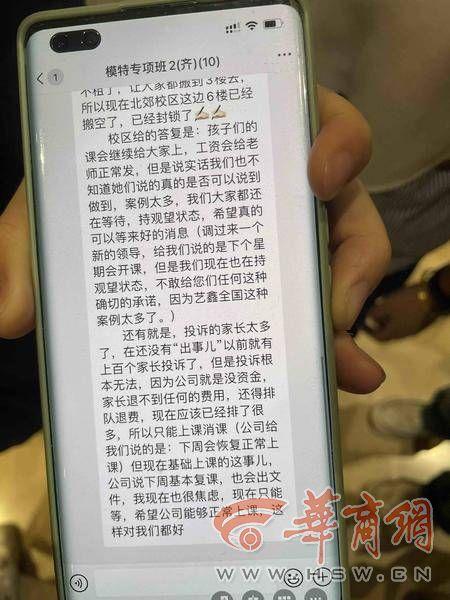 模特专项班2(齐)(10)
1
不租了，让大家都搬到3楼去，
所以现在北郊校区这边6楼已经
搬空了，已经封锁了✍🏻✍🏻
校区给的答复是：孩子们的
课会继续给大家上，工资会给老
师正常发，但是说实话我们也不
知道她们说的真的是否可以说到
做到，案例太多，我们大家都还
在等待，持观望状态，希望真的
可以等来好的消息（调过来一个
新的领导，给我们说的是下个星
期会开课，但是我们现在也在持
观望状态，不敢给您们任何这种
确切的承诺，因为艺鑫全国这种
案例太多了。）
还有就是，投诉的家长太多
了，在还没有“出事儿”以前就有
上百个家长投诉了，但是投诉根
本无法，因为公司就是没资金，
家长退不到任何的费用，还得排
队退费，现在应该已经排了很
多，所以只能上课消课（公司给
我们说的是：下周会恢复正常上
课）但现在基础上课的这事儿，
公司说下周基本复课，也会出文
件，我现在也很焦虑，现在只能
等，希望公司能够正常上课，这
样对我们都好
華商網
WWW.HSW.CN